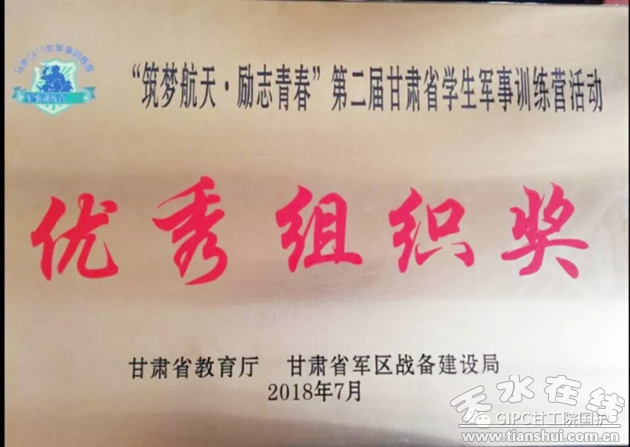 “筑梦航天·励志青春”第二届甘肃省学生军事训练营活动
优秀组织奖
甘肃省教育厅 甘肃省军区战备建设局
2018年7月
天水在线
GIPC甘工院国护
www.tianshui.com.cn